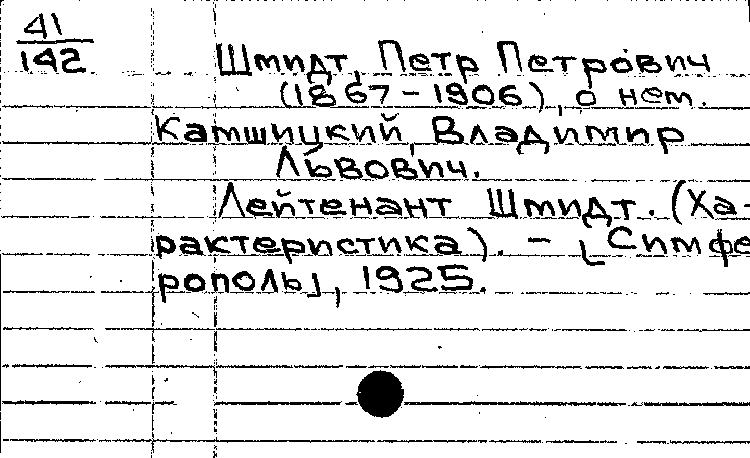 41
142
Шмидт, Петр Петрович
(1867-1906), о нем.
Камшицкий, Владимир
Львович.
Лейтенант Шмидт. (Ха-
рактеристика). - [Симфе
рополь], 1925.